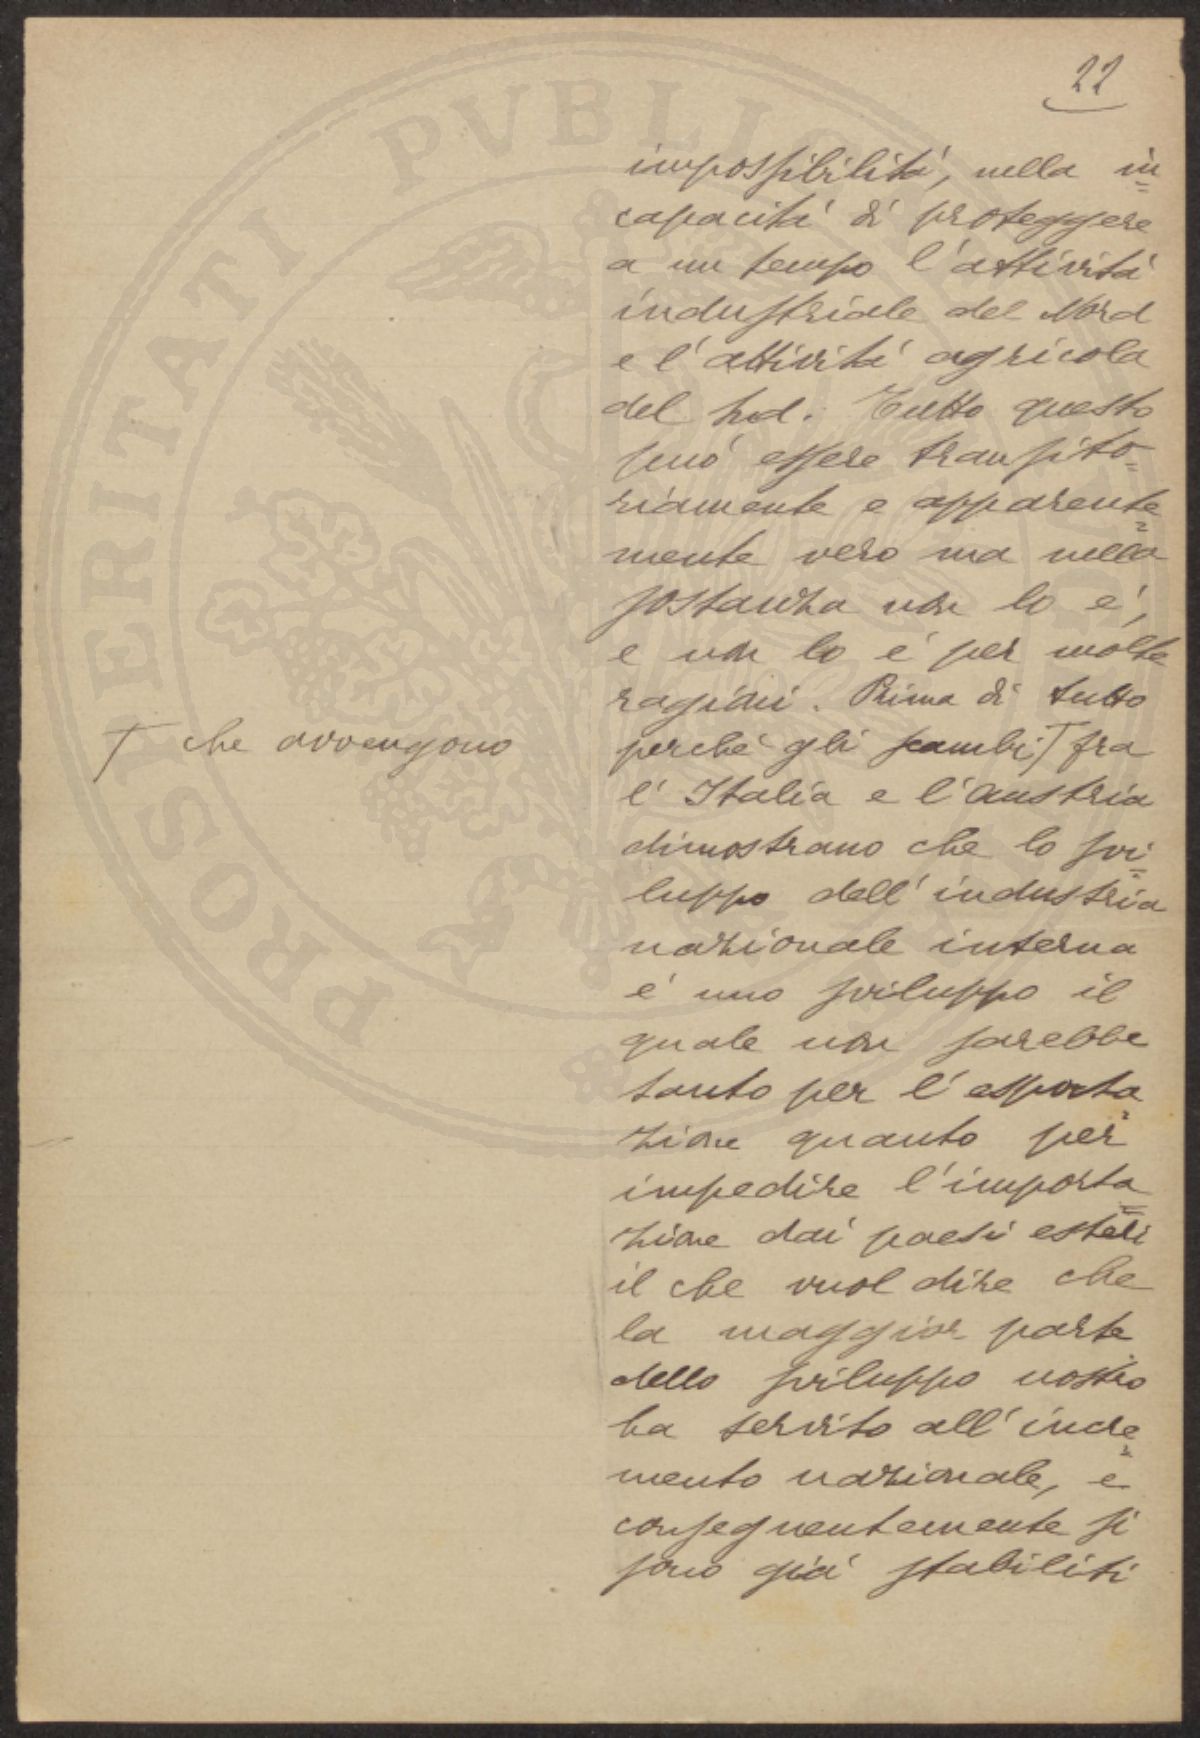 22
impossibilità, nella in=
capacità di proteggere
a un tempo l'attività
industriale del Nord
e l'attività agricola
del Sud. Tutto questo
può essere transito=
riamente e apparente=
mente vero ma nella
sostanza non lo è,
e non lo è per molte
ragioni. Prima di tutto
perché gli scambi T fra
T che avvengono
l'Italia e l'Austria
dimostrano che lo svi=
luppo dell'industria
nazionale interna
è uno sviluppo il
quale non sarebbe
tanto per l'esporta=
zione quanto per
impedire l'importa=
zione dai paesi esteri
il che vuol dire che
la maggior parte
dello sviluppo nostro
ha servito all'incre=
mento nazionale, e
conseguentemente si
sono già stabiliti
PROSPERITATI PVBLICAE